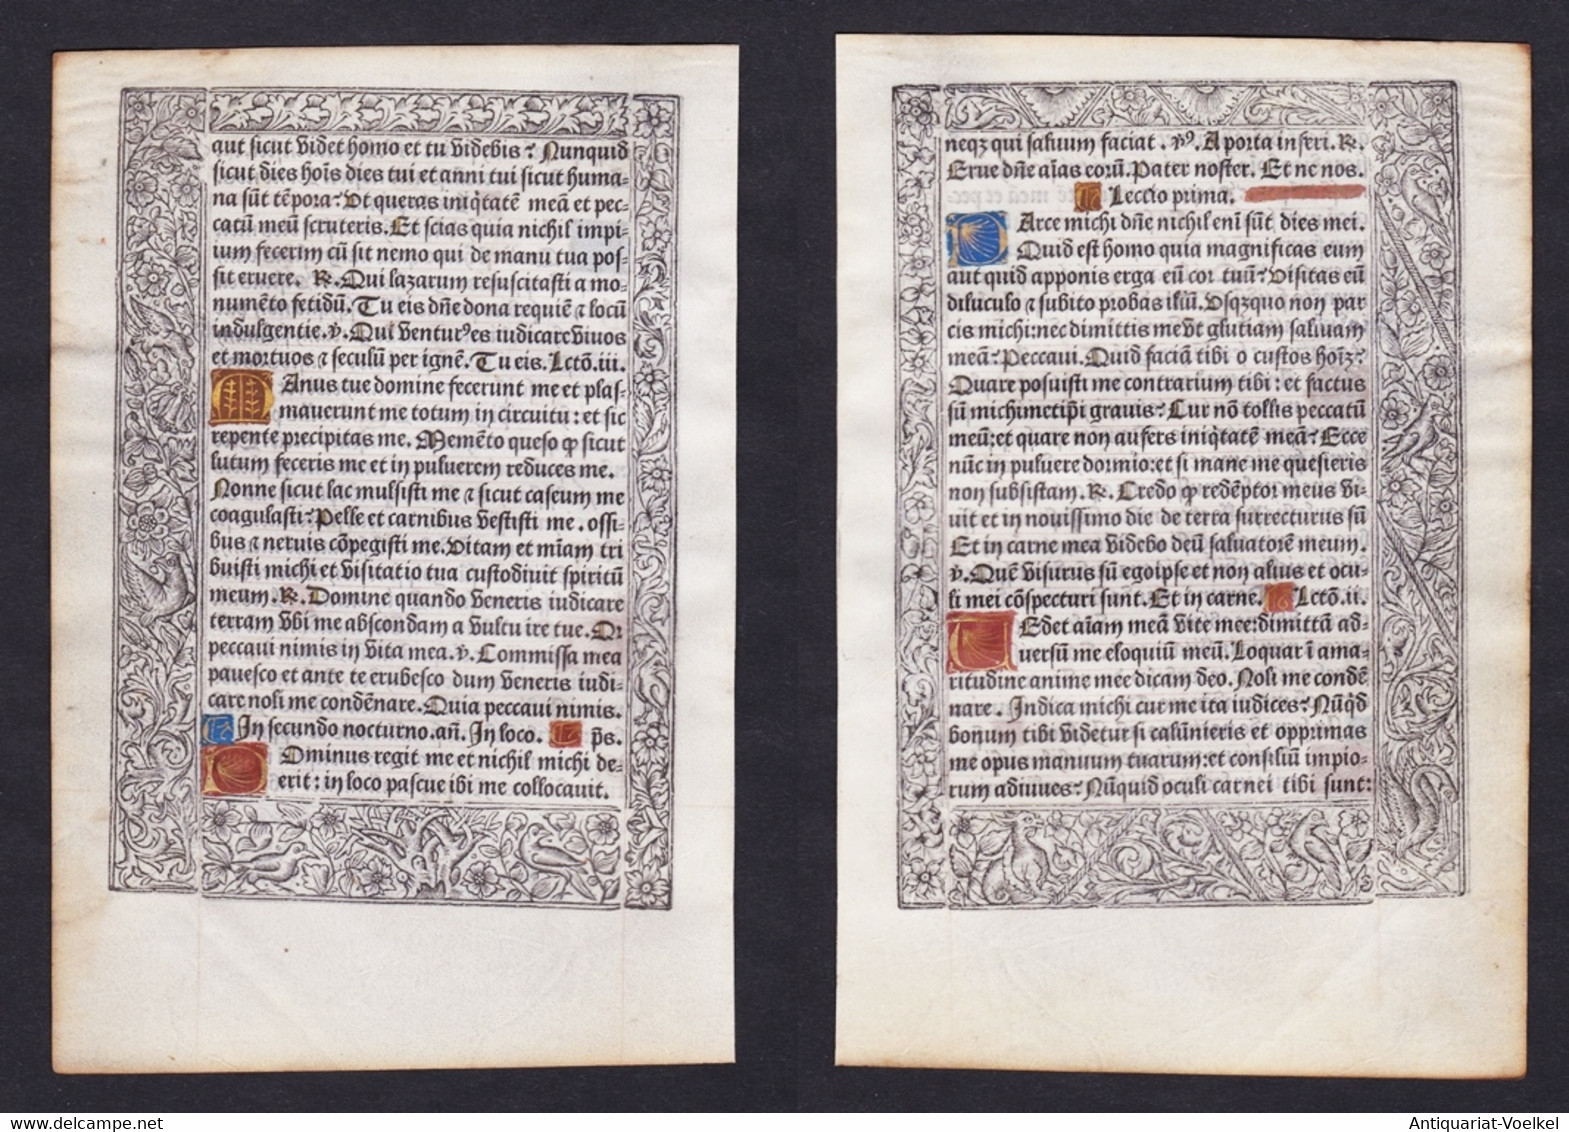 aut sicut videt homo et tu videbis? Nunquid
sicut dies hoīs dies tui et anni tui sicut huma-
na sūt tēpora? Ut queras iniq̄tatē meā et pec-
catū meū scruteris. Et scias quia nichil impi-
um fecerim cū sit nemo qui de manu tua pos-
sit eruere. ℟. Qui lazarum resuscitasti a mo-
numēto fetidū. Tu eis dn̄e dona requiē ⁊ locū
indulgentie. ℣. Qui ventur⁹es iudicare vivos
et mortuos ⁊ seculū per ignē. Tu eis. Lctō. iii.
Manus tue domine fecerunt me et plas-
maverunt me totum in circuitu: et sic
repente precipitas me. Memēto queso ꝙ sicut
lutum feceris me et in puluerem reduces me.
Nonne sicut lac mulsisti me ⁊ sicut caseum me
coagulasti? Pelle et carnibus vestisti me. ossi-
bus ⁊ neruis cōpegisti me. Vitam et mīam tri
buisti michi et visitatio tua custodiuit spiritū
meum. ℟. Domine quando veneris iudicare
terram vbi me abscondam a vultu ire tue. Qr
peccaui nimis in vita mea. ℣. Commissa mea
pauesco et ante te erubesco dum veneris iudi-
care noli me condēnare. Quia peccaui nimis.
In secundo nocturno. an̄. In loco. p̄s.
Dominus regit me et nichil michi de-
erit: in loco pascue ibi me collocauit.
neqȝ qui saluum faciat. ℣⁹. A porta inferi. ℟.
Erue dn̄e aīas eorū. Pater noster. Et ne nos.
Leccio prima.
Parce michi dn̄e nichil enī sūt dies mei.
Quid est homo quia magnificas eum
aut quid apponis erga eū cor tuū? Visitas eū
diluculo ⁊ subito probas illū. Usqȝquo non par
cis michi: nec dimittis me vt glutiam saliuam
meā? Peccaui. Quid faciā tibi o custos hoīȝ?
Quare posuisti me contrarium tibi: et factus
sū michimetip̄i grauis? Cur nō tollis peccatū
meū: et quare non aufers iniq̄tatē meā? Ecce
nūc in puluere dormio: et si mane me quesieris
non subsistam. ℟. Credo ꝙ redēptor meus vi-
uit et in nouissimo die de terra surrecturus sū
Et in carne mea videbo deū saluatorē meum.
℣. Quē visurus sū ego ipse et non alius et ocu-
li mei cōspecturi sunt. Et in carne. Lctō. ii.
Tedet aīam meā vite mee: dimittā ad-
uersū me eloquiū meū. Loquar ī ama-
ritudine anime mee dicam deo. Noli me condē
nare. Indica michi cur me ita iudices? Nūq̄d
bonum tibi videtur si calūnieris et opprimas
me opus manuum tuarum: et consiliū impio-
rum adiuues? Nūquid oculi carnei tibi sunt:
Antiquariat-Voelkel